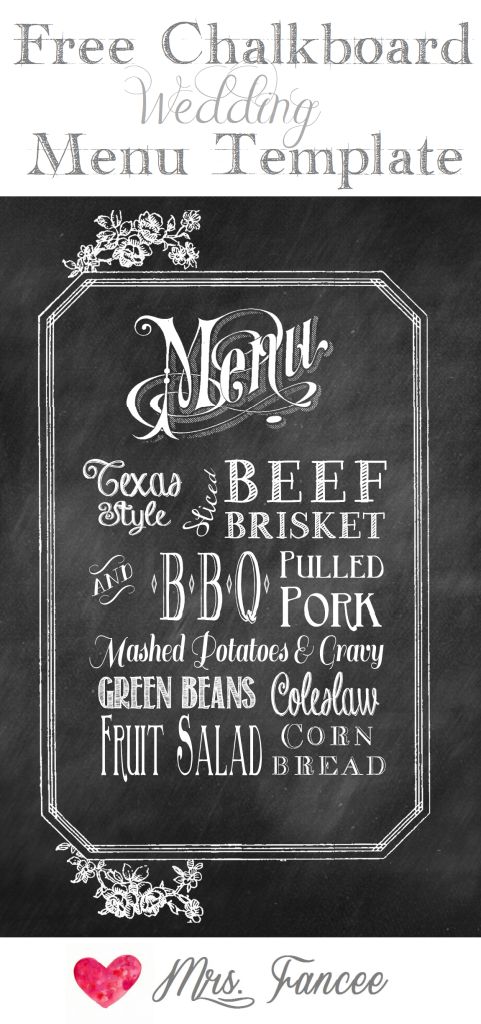 Free Chalkboard
Wedding
Menu Template
Menu
Texas Style Sliced BEEF BRISKET
AND B·B·Q PULLED PORK
Mashed Potatoes & Gravy
GREEN BEANS Coleslaw
FRUIT SALAD CORN BREAD
Mrs. Fancee